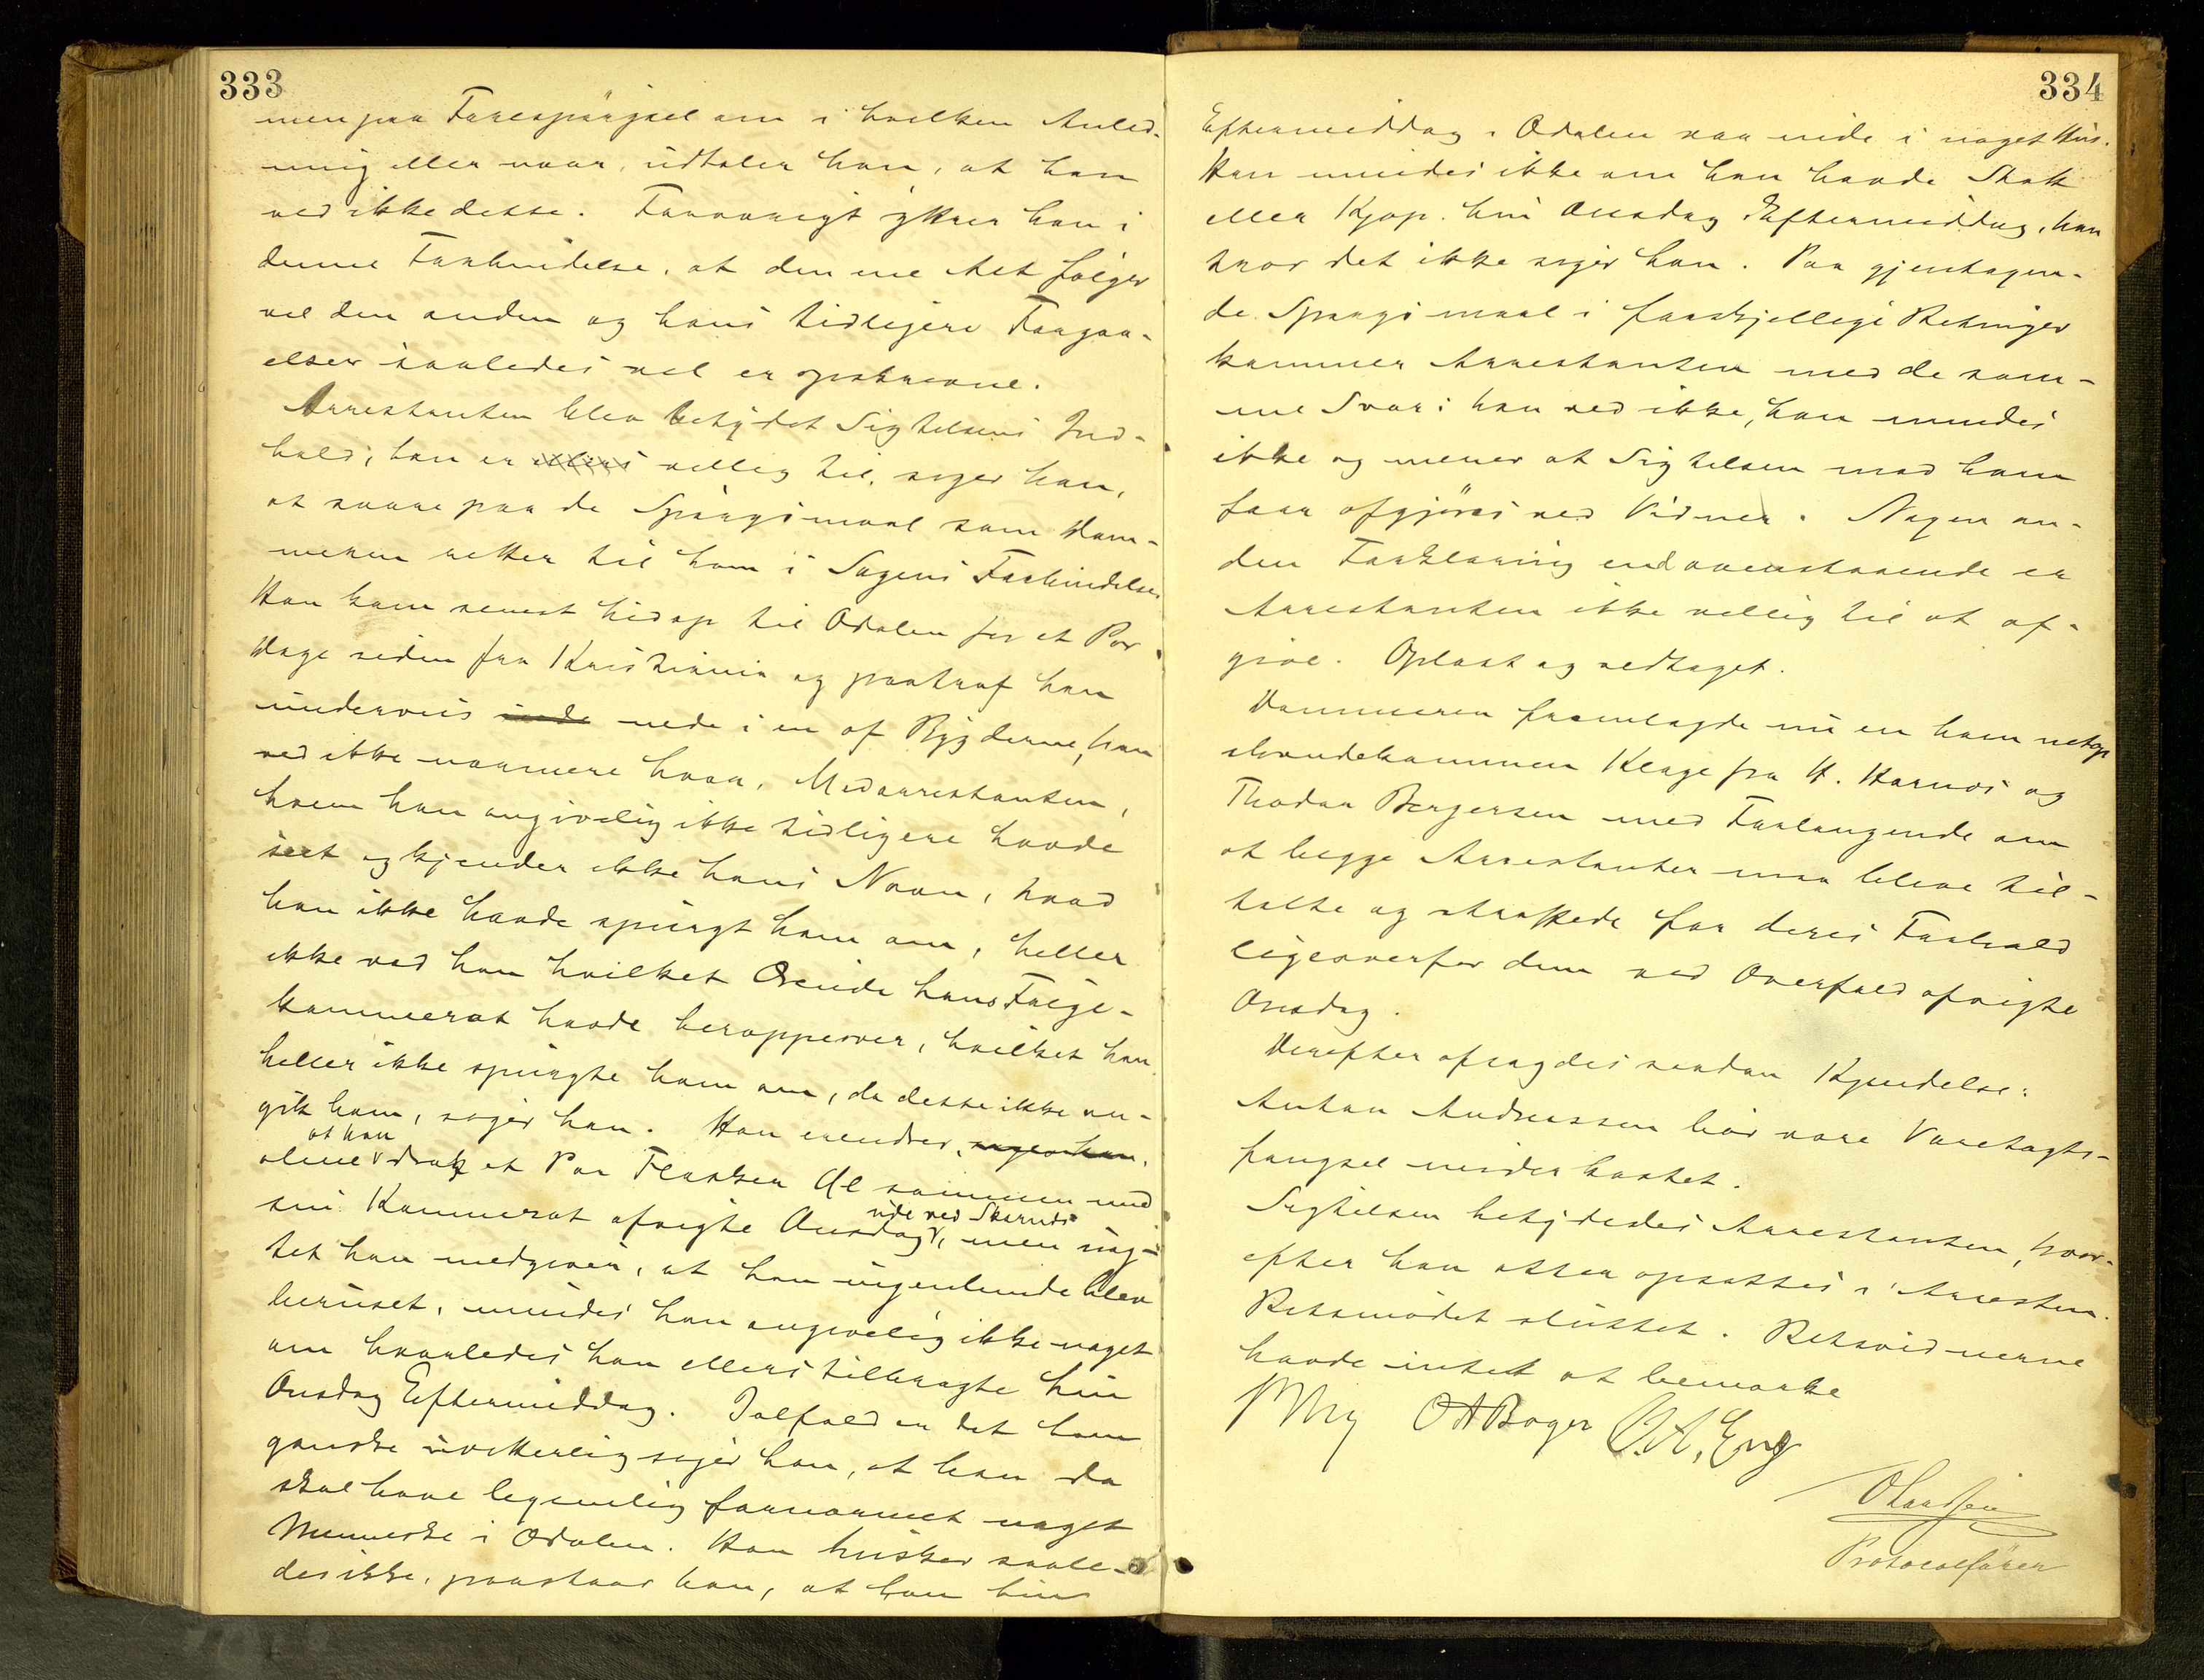 333
men paa Forespørgsel om i hvilken Anled-
ning eller naar, udtaler han, at han
ved ikke dette. Forøvrigt yttrer han i
denne Forbindelse, at den ene Att følger
vel den anden og hans tidligere Forgaa-
elser saaledes vel er opskrevne.
Arrestanten blev betydet Sigtelsens Ind-
hold; han er villig til, siger han,
at svare paa de Spørgsmaal som Dom-
meren retter til ham i Sagens Forbindelse.
Han kom senest hidop til Odalen for et Par
Dage siden fra Kristiania og paatraf han
underveis inde nede i en af Bygderne, han
ved ikke nærmere hvor, Medarrestanten,
hvem han angivelig ikke tidligere havde
seet og kjender ikke hans Navn, hvad
han ikke havde spurgt ham om, heller
ikke ved han hvilket Ærende hans Følge-
kammerat havde heroppover, hvilket han
heller ikke spurgte ham om, da dette ikke an-
gik ham, siger han. Han erindrer, siger han,
at han
alene drak et Par Flasker Øl sammen med
ude ved Skarnes
sin Kammerat afvigte Onsdag, men uag-
tet han medgiver, at han ingenlunde blev
beruset, mindes han angivelig ikke noget
om hvorledes han ellers tilbragte hin
Onsdag Eftermiddag. Ialfald er det ham
ganske uvitterlig siger han, at han da
skal have legemlig fornærmet noget
Menneske i Odalen. Han husker saale-
des ikke, paastaar han, at han hin
334
Eftermiddag i Odalen var inde i noget Hus.
Han mindes ikke om han havde Skak
eller Kjøp hin Onsdag Eftermiddag, han
tror det ikke siger han. Paa gjentagen-
de Spørgsmaal i forskjellige Retninger
kommer Arrestanten med de sam-
me Svar: han ved ikke, han mindes
ikke og mener at Sigtelsen mod ham
faar afgjøres ved Vidner. Nogen an-
den Forklaring end ovenstaaende er
Arrestanten ikke villig til at af-
give. Oplæst og vedtaget.
Dommeren fremlagde nu en ham netop
ihændekommen Klage fra H. Harnæs og
Thodor Bergersen med Forlangende om
at begge Arrestanter maa blive til-
talte og straffede for deres Forhold
ligeoverfor dem ved Overfald afvigte
Onsdag.
Derefter afsagdes saadan Kjendelse:
Anton Andreassen bør være Varetægts-
fængsel underkastet.
Sigtelsen betydedes Arrestanten, hvor-
efter han atter opsattes i Arresten.
Retsmødet sluttet. Retsvidnerne
havde intet at bemærke
O A Boger O. A. Eng
Protocolfører